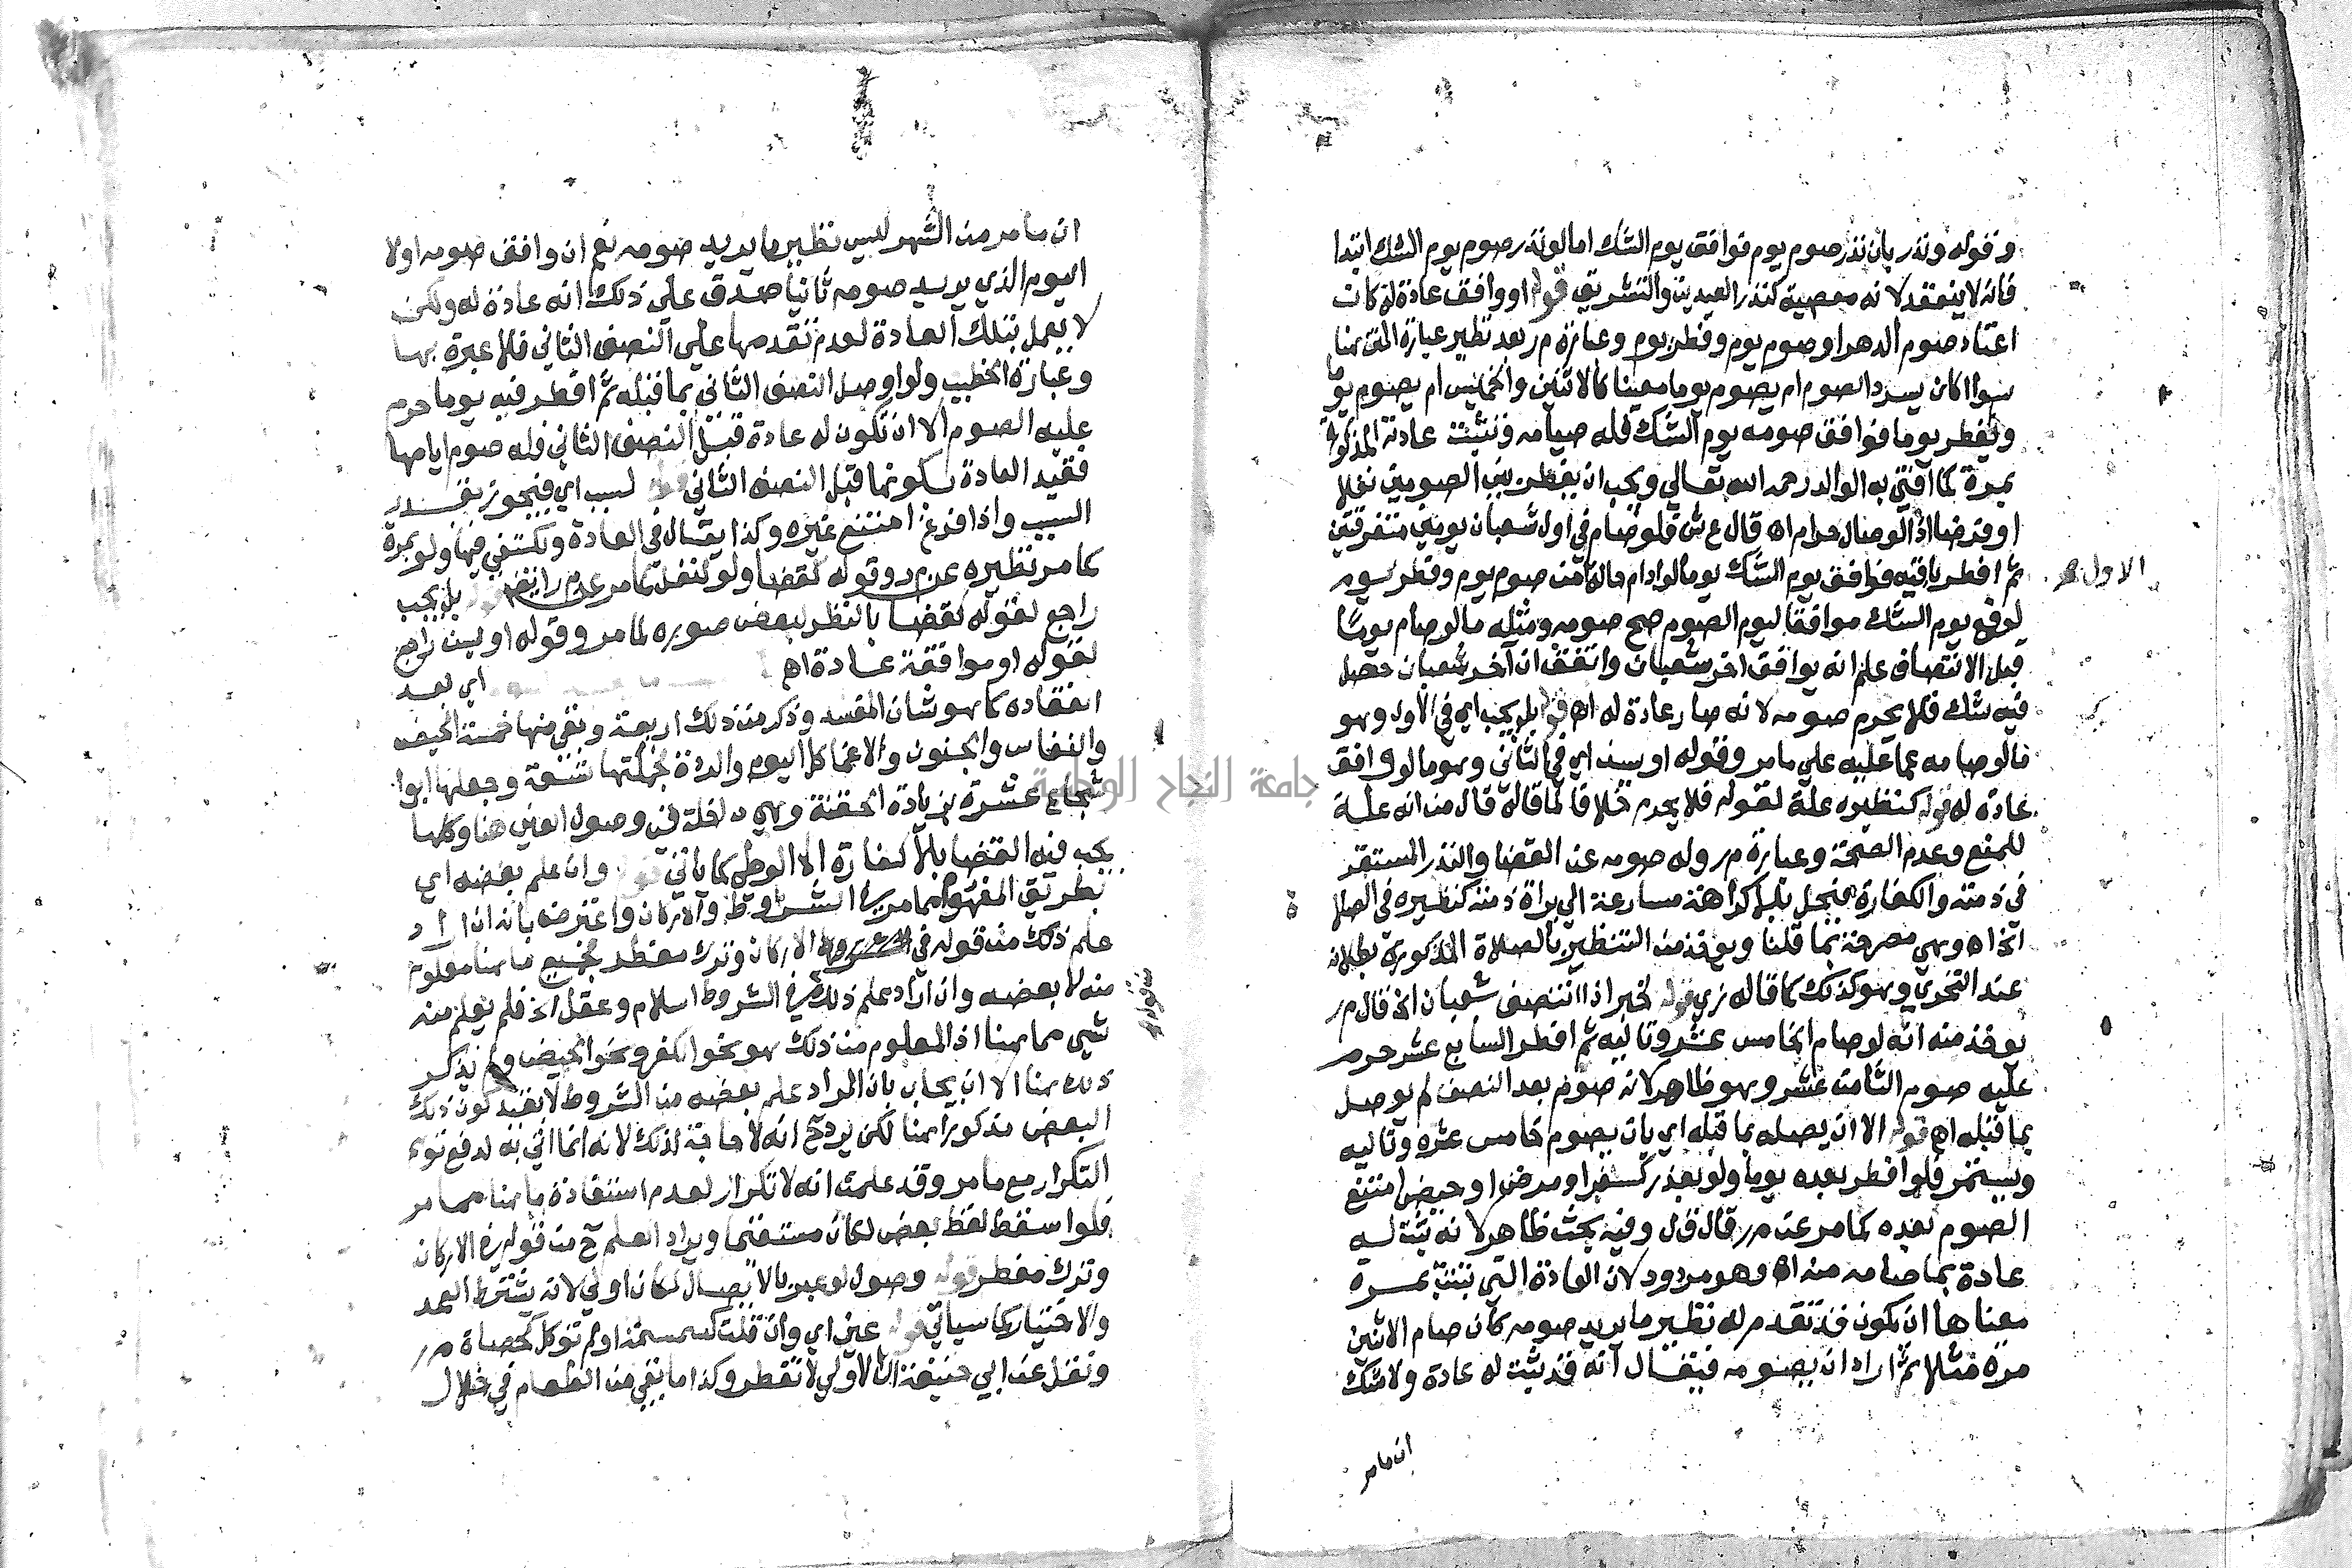 وقوله ونذر بان نذر صوم يوم فوافق يوم الشك اما لو نذر صوم يوم الشك ابتدا
فانه لا ينعقد لانه معصية كنذر العيدين والتشريق قوله او وافق عادة له كان
اعتاد صوم الدهر او صوم يوم وفطر يوم وعبارة م ر بعد نظير عبارة المتن هنا
سوا اكان يسرد الصوم ام يصوم يوما معينا كالاثنين والخميس ام يصوم يوما
ويفطر يوما فوافق صومه يوم الشك فله صيامه وتثبت عادته المذكورة
بمرة كما افتى به الوالد رحمه الله تعالي ويجب ان يفطر بين الصومين نفلا
او فرضا اذ الوصال حرام اه قال ع ش فلو صام في اول شعبان يومين متفرقين
ثم افطر باقيه فوافق يوم الشك يوما لو ادام حاله من صوم يوم وفطر يوم
الاول صح
لوقع يوم الشك موافقا ليوم الصوم صح صومه ومثله ما لو صام يوما
قبل الانتصاف علم انه يوافق اخر شعبان واتفق ان آخر شعبان حصل
فيه شك فلا يحرم صومه لانه صار عادة له اه قوله بل يجب اي في الاول وهو
ما لو صامه عما عليه علي ما مر وقوله او يسن اي في الثاني وهو ما لو وافق
عادة له قوله كنظيره علة لقوله فلا يحرم خلافا لما قاله قال من انه علة
للمنع وعدم الصحة وعبارة م ر وله صومه عن القضا والنذر المستقر
في ذمته والكفارة فيحل بلا كراهة مسارعة الي براة ذمته كنظيره في الصلاة
الخ اه وهي مصرحة بما قلنا ويوخذ من التنظير بالصلاة المذكورة بطلانه
عند التحري وهو كذلك كما قاله زي قوله لخبر اذا انتصف شعبان الخ قال م ر
يوخذ منه انه لو صام الخامس عشر وتاليه ثم افطر السابع عشر حرم
عليه صوم الثامن عشر وهو ظاهر لانه صوم بعد النصف لم يوصل
بما قبله اه قوله الا ان يصله بما قبله اي بان يصوم خامس عشره وتاليه
ويستمر فلو افطر بعده يوما ولو بعذر كسفر او مرض او حيض امتنع
الصوم بعده كما مر عن م ر قال ق ل وفيه بحث ظاهر لانه يثبت له
عادة بما صامه منه اه وهو مردود لان العادة التي تثبت بمرة
معناها ان يكون قد تقدم له نظير ما يريد صومه كان صام الاثنين
مرة مثلا ثم اراد ان يصومه فيقال انه قد ثبت له عادة ولا شك
ان ما مر
ان ما مر من الشهر ليس نظير ما يريد صومه نعم ان وافق صومه اولا
اليوم الذي يريد صومه ثانيا صدق علي ذلك انه عادة له ولكن
لا يعمل بتلك العادة لعدم تقدمها علي النصف الثاني فلا عبرة بها
وعبارة الخطيب ولو اوصل النصف الثاني بما قبله ثم افطر فيه يوما حرم
عليه الصوم الا ان تكون له عادة قبل النصف الثاني فله صوم ايامها
فقيد العادة بكونها قبل النصف الثاني قوله لسبب اي فيجوز بقدر
السبب واذا فرغ امتنع غيره وكذا يقال في العادة ويكتفي فيها ولو بمرة
كما مر نظيره عن م ر وقوله كقضا ولو لنفل كما مر عن م ر ايضا قوله بل يجب
راجع لقوله كقضا بالنظر لبعض صوره لما مر وقوله او يسن راجع
لقوله او موافقة عادة اه اي بعد
انعقاده كما هو شان المفسد وذكر من ذلك اربعة وبقي منها خمسة الحيض
والنفاس والجنون والاغما كل اليوم والردة فجملتها تسعة وجعلها ابوا
شجاع عشرة بزيادة الحقنة وهي داخلة في وصول العين هنا وكلها
يجب فيه القضا بلا كفارة الا الوطي كما ياتي قوله وان علم بعضه اي
بطريق المفهوم مما مر في الشروط والاركان واعترضه بانه ان اراد
علم ذلك من قوله في الاركان وترك مفطر فجميع ما هنا معلوم
منه لا بعضه وان اراد علم ذلك من قوله في الشروط اسلام وعقل الخ فلم يعلم منه
شيي مما هنا اذ المعلوم من ذلك هو نحو الكفر ونحو الحيض ولم يذكر
ذلك هنا الا ان يجاب بان المراد علم بعضه من الشروط لا بقيد كون ذلك
البعض مذكورا هنا لكن يرد ح انه لا حاجة لذلك لانه انما اتي به لدفع توهم
التكرار مع ما مر وقد علمت انه لا تكرار لعدم استفادة ما هنا مما مر
فلو اسقط لفظ بعض لكان مستقيما ويراد العلم ح من قوله في الاركان
وترك مفطر قوله وصول لو عبر بالايصال لكان اولي لانه يشترط العمد
والاختيار كما سياتي قوله عين اي وان قلت كسمسمة او لم توكل كحصاة م ر
ونقل عن ابي حنيفة ان الاولي لا تفطر وكذا ما بقي من الطعام في خلال
جامعة النجاح الوطنية